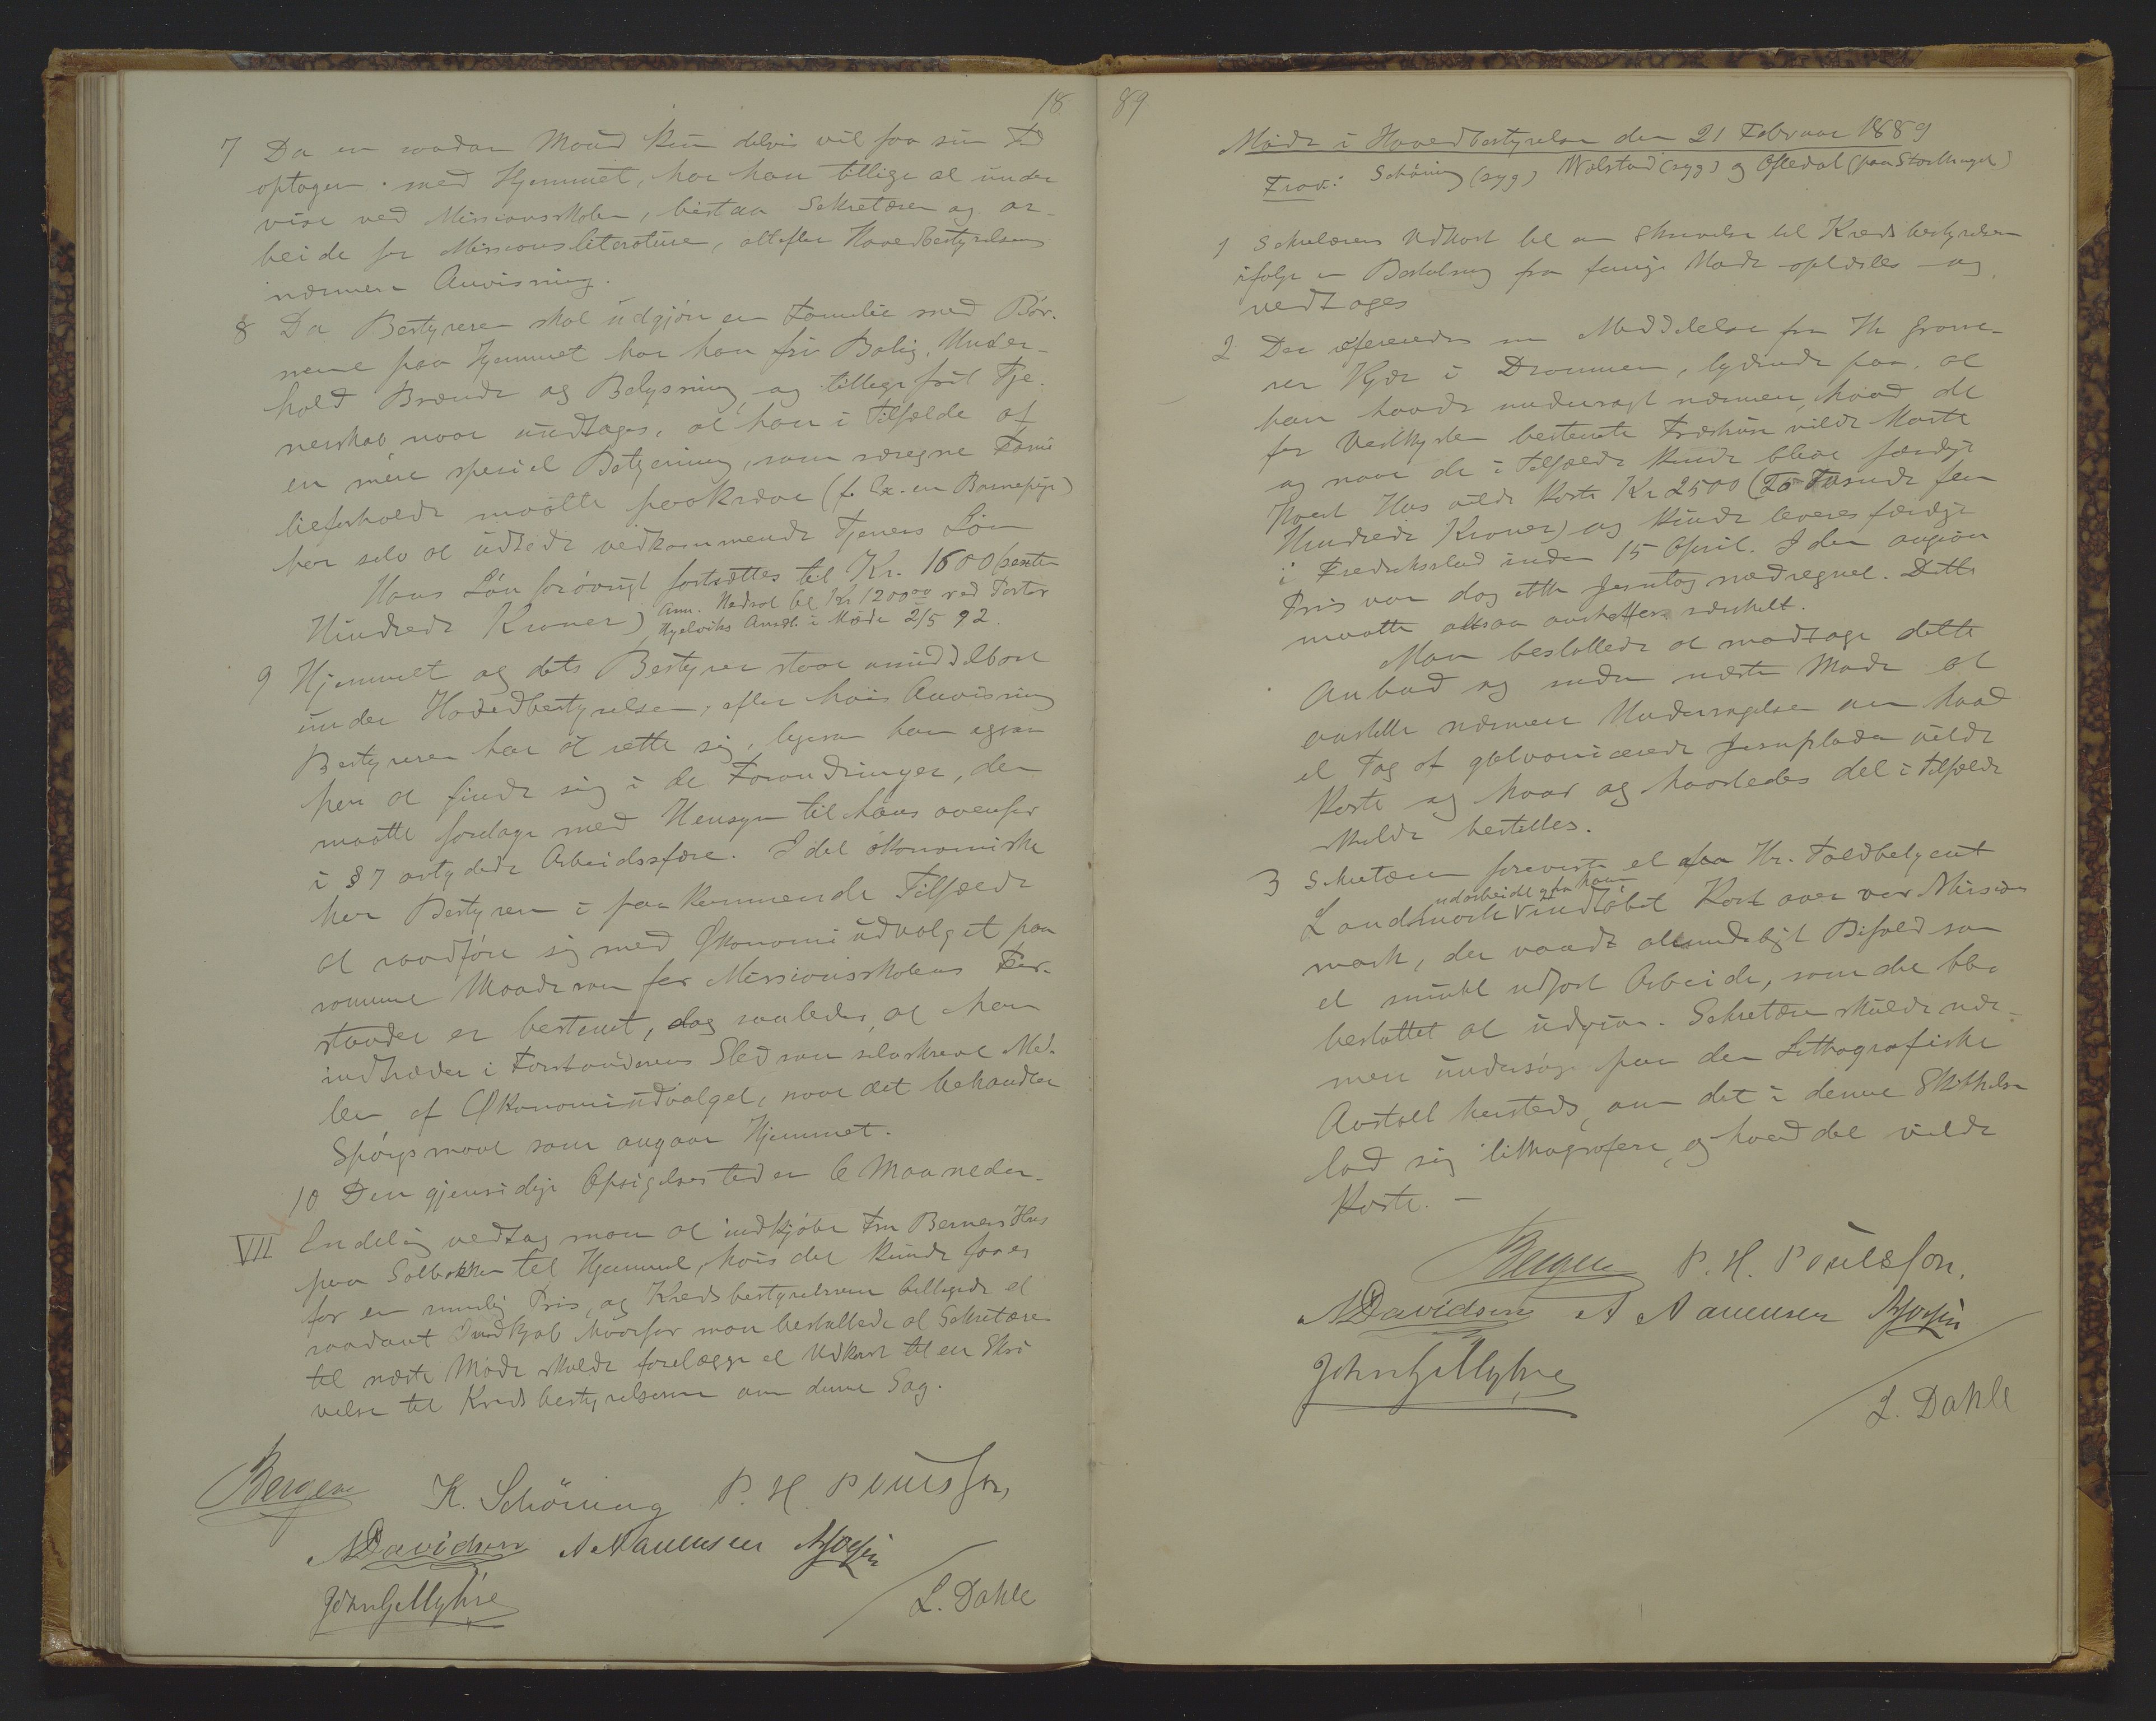 18
7 Da en saadan Mand kun delvis vil faa sin Tid
optagen med Hjemmet, har han tillige at under
vise ved Missionsskolen, bistaa Sekretæren og ar-
beide for Missionsliteraturen, alt efter Hovedbestyrelsens
nærmere Anvisning.
8 Da Bestyreren skal udgjøre en Familie med Bør-
nene paa Hjemmet har han fri Bolig, Under-
hold Brænde og Belysning og tillige frit Tje-
nerskab naar undtages, at han i Tilfælde af
en mere speciel Betjening, som særegne Fami
lieforholde maatte paakræve (f. Ex. en Barnepige)
har selv at udrede vedkommende Tjeners Løn
Hans Løn forøvrigt fastsættes til Kr. 1600 (sexten
Hundrede Kroner) Anm. Nedsat til Kr 1200.00 ved Pastor
Ansæt. i Møde 2/5 92.
9 Hjemmet og dets Bestyrer staar umiddelbart
under Hovedbestyrelsen, efter hvis Anvisning
Bestyreren har at rette sig, ligesom han ogsaa
har at finde sig i de Forandringer, der
maatte foretages med Hensyn til hans ovenfor
i § 7 antydede Arbeidssfære. I det økonomiske
har Bestyreren i paakommende Tilfælde
at raadføre sig med Økonomiudvalget paa
samme Maade som for Missionsskolens For-
stander er bestemt, dog saaledes, at han
indtræder i Forstanderens Sted som selvskreve Med-
lem af Økonomiudvalget, naar det behandler
Spørgsmaal som angaar Hjemmet.
10 Den gjensidige Opsigelsestid er 6 Maaneder.
VII Endelig vedtog man at indkjøbe Fru Berners Hus
paa Solbakken til Hjemmet, hvis det kunde faaes
for en rimelig Pris, og Kredsbestyrelserne billigede et
saadant Indkjøb hvorfor man besluttede at Sekretæren
til næste Møde skulde forelægge et Udkast til en Skri
velse til Kredsbestyrelserne om denne Sag.
Bergen K. Schöning P. H. Poulsson,
Davidsen A Aanensen
John G Myhre L. Dahle
89
Møde i Hovedbestyrelsen den 21 Februar 1889
Frav: Schöning (syg) Wolstad (syg) og Oftedal (paa Storthinget)
1 Sekretærens Udkast til en Skrivelse til Kredsbestyrelsen
ifølge en Beslutning fra forrige Møde oplæstes og
vedtages
2 Der refereredes en Meddelelse fra Hr
Kjær i Drammen, lydende paa, at
han havde undersøgt nærmere, hvad det
for bestemte Træhus vilde koste
og naar de i Tilfælde kunde blive færdige
Hvert Hus vilde koste Kr 2500 (To Tusinde fem
Hundrede Kroner) og kunde leveres færdige
i Fredriksstad inden 15 April. I den angivne
Pris var dog ikke Jerntag medregnet. Dette
maatte altsaa anskaffes særskilt.
Man besluttede at modtage dette
Anbud og inden næste Møde at
anstille nærmere Undersøgelser om hvad
et Tag af galvaniserede Jernplader vilde
koste og hvor og hvorledes det i Tilfælde
skulde bestilles.
3 Sekretæren foreviste et af Hr. Toldbetjent
udarbeidet
Landmark Kart over vor Mission
mark, der vandt almindeligt Bifald som
et smukt udført Arbeide, som det blev
besluttet at udgive. Sekretæren skulde nær-
mere undersøge paa den Lithografiske
Anstalt hersteds, om det i denne Skikkelse
lod sig lithografere, og hvad det vilde
koste. –
Bergen P. H. Poulsson.
Davidsen A Aanensen
John G Myhre
L. Dahle